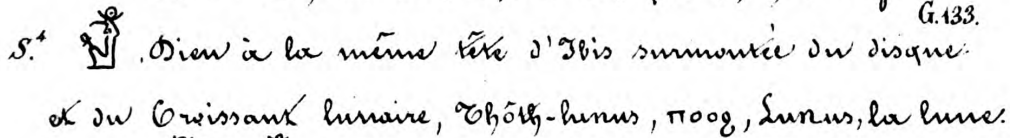 G.133.
S.⁴ . Dieu à la même tête d'Ibis surmontée du disque
et du Croissant lunaire, Thôth-lunus, πooϩ, Lunus, la lune.